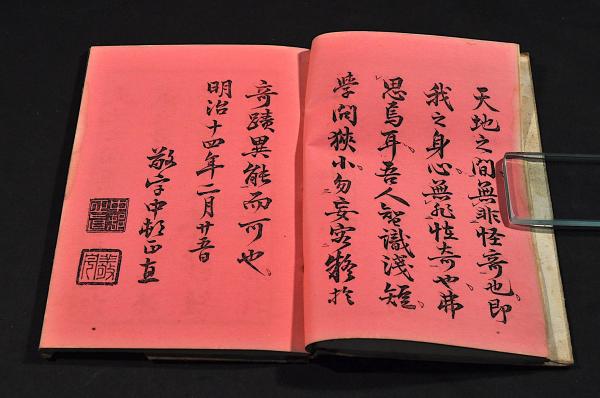 天地之間無非怪奇也即
我之身心無非怪奇也弗
思焉耳吾人智識淺短
學問狹小勿妄容疑於
奇蹟異能而可也
明治十四年二月廿五日
敬宇中邨正直
中邨正直
敬宇